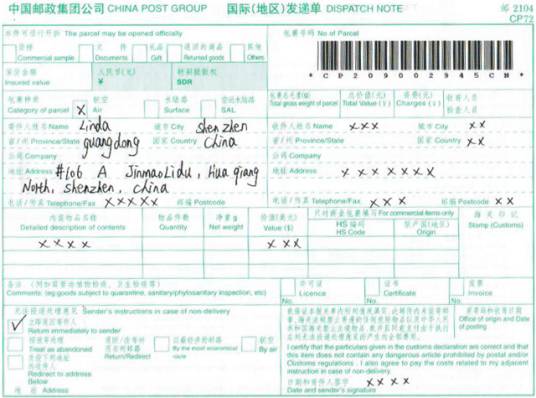 中国邮政集团公司 CHINA POST GROUP 国际(地区)发递单 DISPATCH NOTE
邮 2104
CP72
The parcel may be opened officially
包裹号码 No of Parcel
Commercial sample
Documents
Gift
Returned goods
Others
* C P 2 0 9 0 0 2 9 4 5 C N *
保价金额 人民币(¥) 特别提款权
Insured value SDR
包裹种类 航空 水陆路 空运水陆路
Category of parcel X Air Surface SAL
Total gross weight of parcel
总价值(元)
Total Value (¥)
资费(元)
Charges (¥)
收寄人员
检查人员
寄件人姓名 Name Linda 城市 City shenzhen
省/州 Province/State guangdong 国家 Country China
公司 Company
地址 Address #106 A JinmaoLidu, Huaqiang
North, shenzhen, china
电话/传真 Telephone/Fax XXXXX 邮编 Postcode
收件人姓名 Name XXX 城市 City XX
省/州 Province/State 国家 Country XX
公司 Company
地址 Address XXXXXXX
电话/传真 Telephone/Fax 邮编 Postcode XX
内装物品名称
Detailed description of contents
物品件数
Quantity
净重 g
Net weight
价值(美元)
Value ($)
For commercial items only
HS 编码
HS Code
原产国(地区)
Origin
海关印记
Stamp (Customs)
XXXX
XXX
Comments: (eg:goods subject to quarantine, sanitary/phytosanitary inspection, etc)
许可证
Licence
No.
证书
Certificate
No.
发票
Invoice
No.
无法投递处理意见 Sender's instructions in case of non-delivery
✓ 立即退回寄件人
Return immediately to sender
Treat as abandoned
Return/Redirect
By the most economical route
航空
By air
Redirect to address
Below
地址 Address
Office of origin and Date
of posting
I certify that the particulars given in the customs declaration are correct and that
this item does not contain any dangerous article prohibited by postal and/or
Customs regulations. I also agree to pay the costs related to my adjacent
instruction in case of non-delivery.
日期和寄件人签字 XXXX
Date and sender's signature